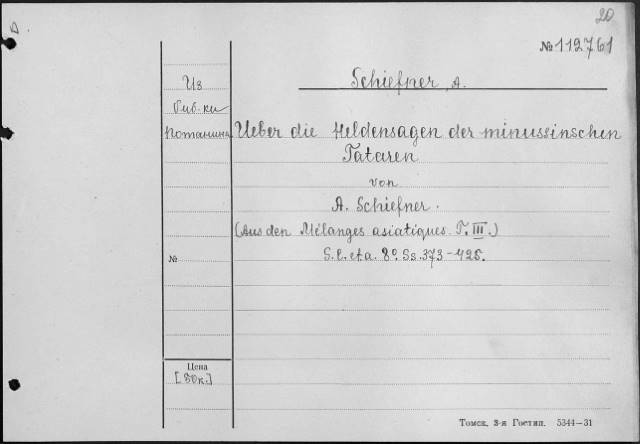 20
№ 112761
Schiefner, A.
Из
биб-ки
Потанина
Ueber die Heldensagen der minussinschen
Tataren
von
A. Schiefner.
(Aus den Mélanges asiatiques. T. III.)
S. l. et a. 8º. Ss. 373-428.
№
Цена
[80к.]
Томск. 3-я Гостип. 5344—31